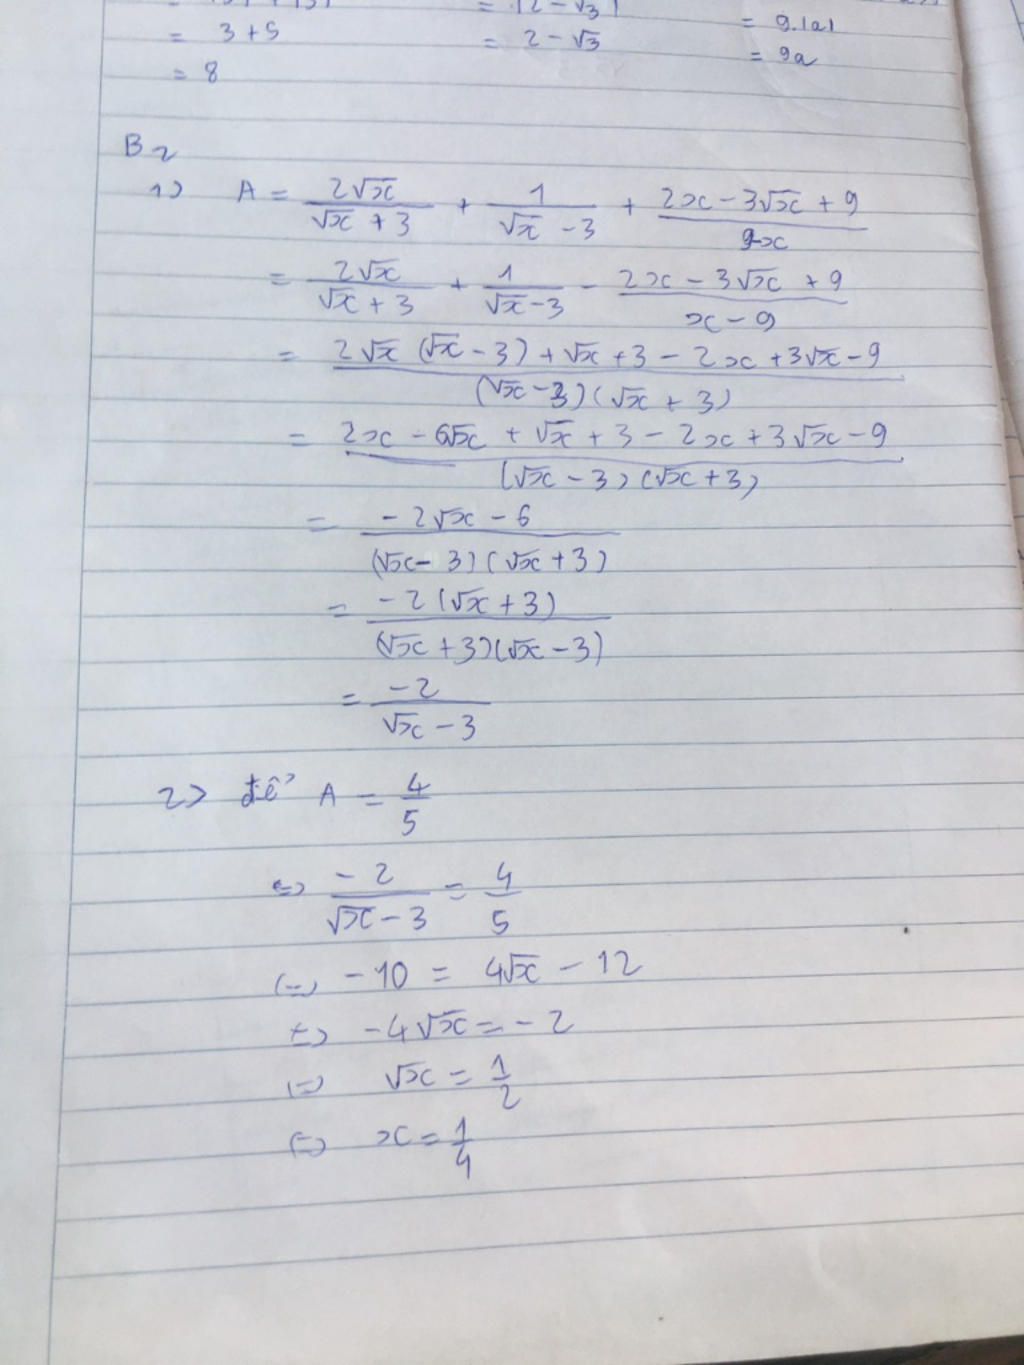 = |2 - √3|
= 3 + 5 = 2 - √3 = 9.|a|
= 8 = 9a
B2
1) A = 2√x / (√x + 3) + 1 / (√x - 3) + (2x - 3√x + 9) / (9-x)
= 2√x / (√x + 3) + 1 / (√x - 3) - (2x - 3√x + 9) / (x - 9)
= (2√x (√x - 3) + √x + 3 - 2x + 3√x - 9) / ((√x - 3)(√x + 3))
= (2x - 6√x + √x + 3 - 2x + 3√x - 9) / ((√x - 3)(√x + 3))
= (-2√x - 6) / ((√x - 3)(√x + 3))
= -2(√x + 3) / ((√x + 3)(√x - 3))
= -2 / (√x - 3)
2) để A = 4/5
<=> -2 / (√x - 3) = 4/5
(=) -10 = 4√x - 12
<=> -4√x = -2
(=) √x = 1/2
(=) x = 1/4